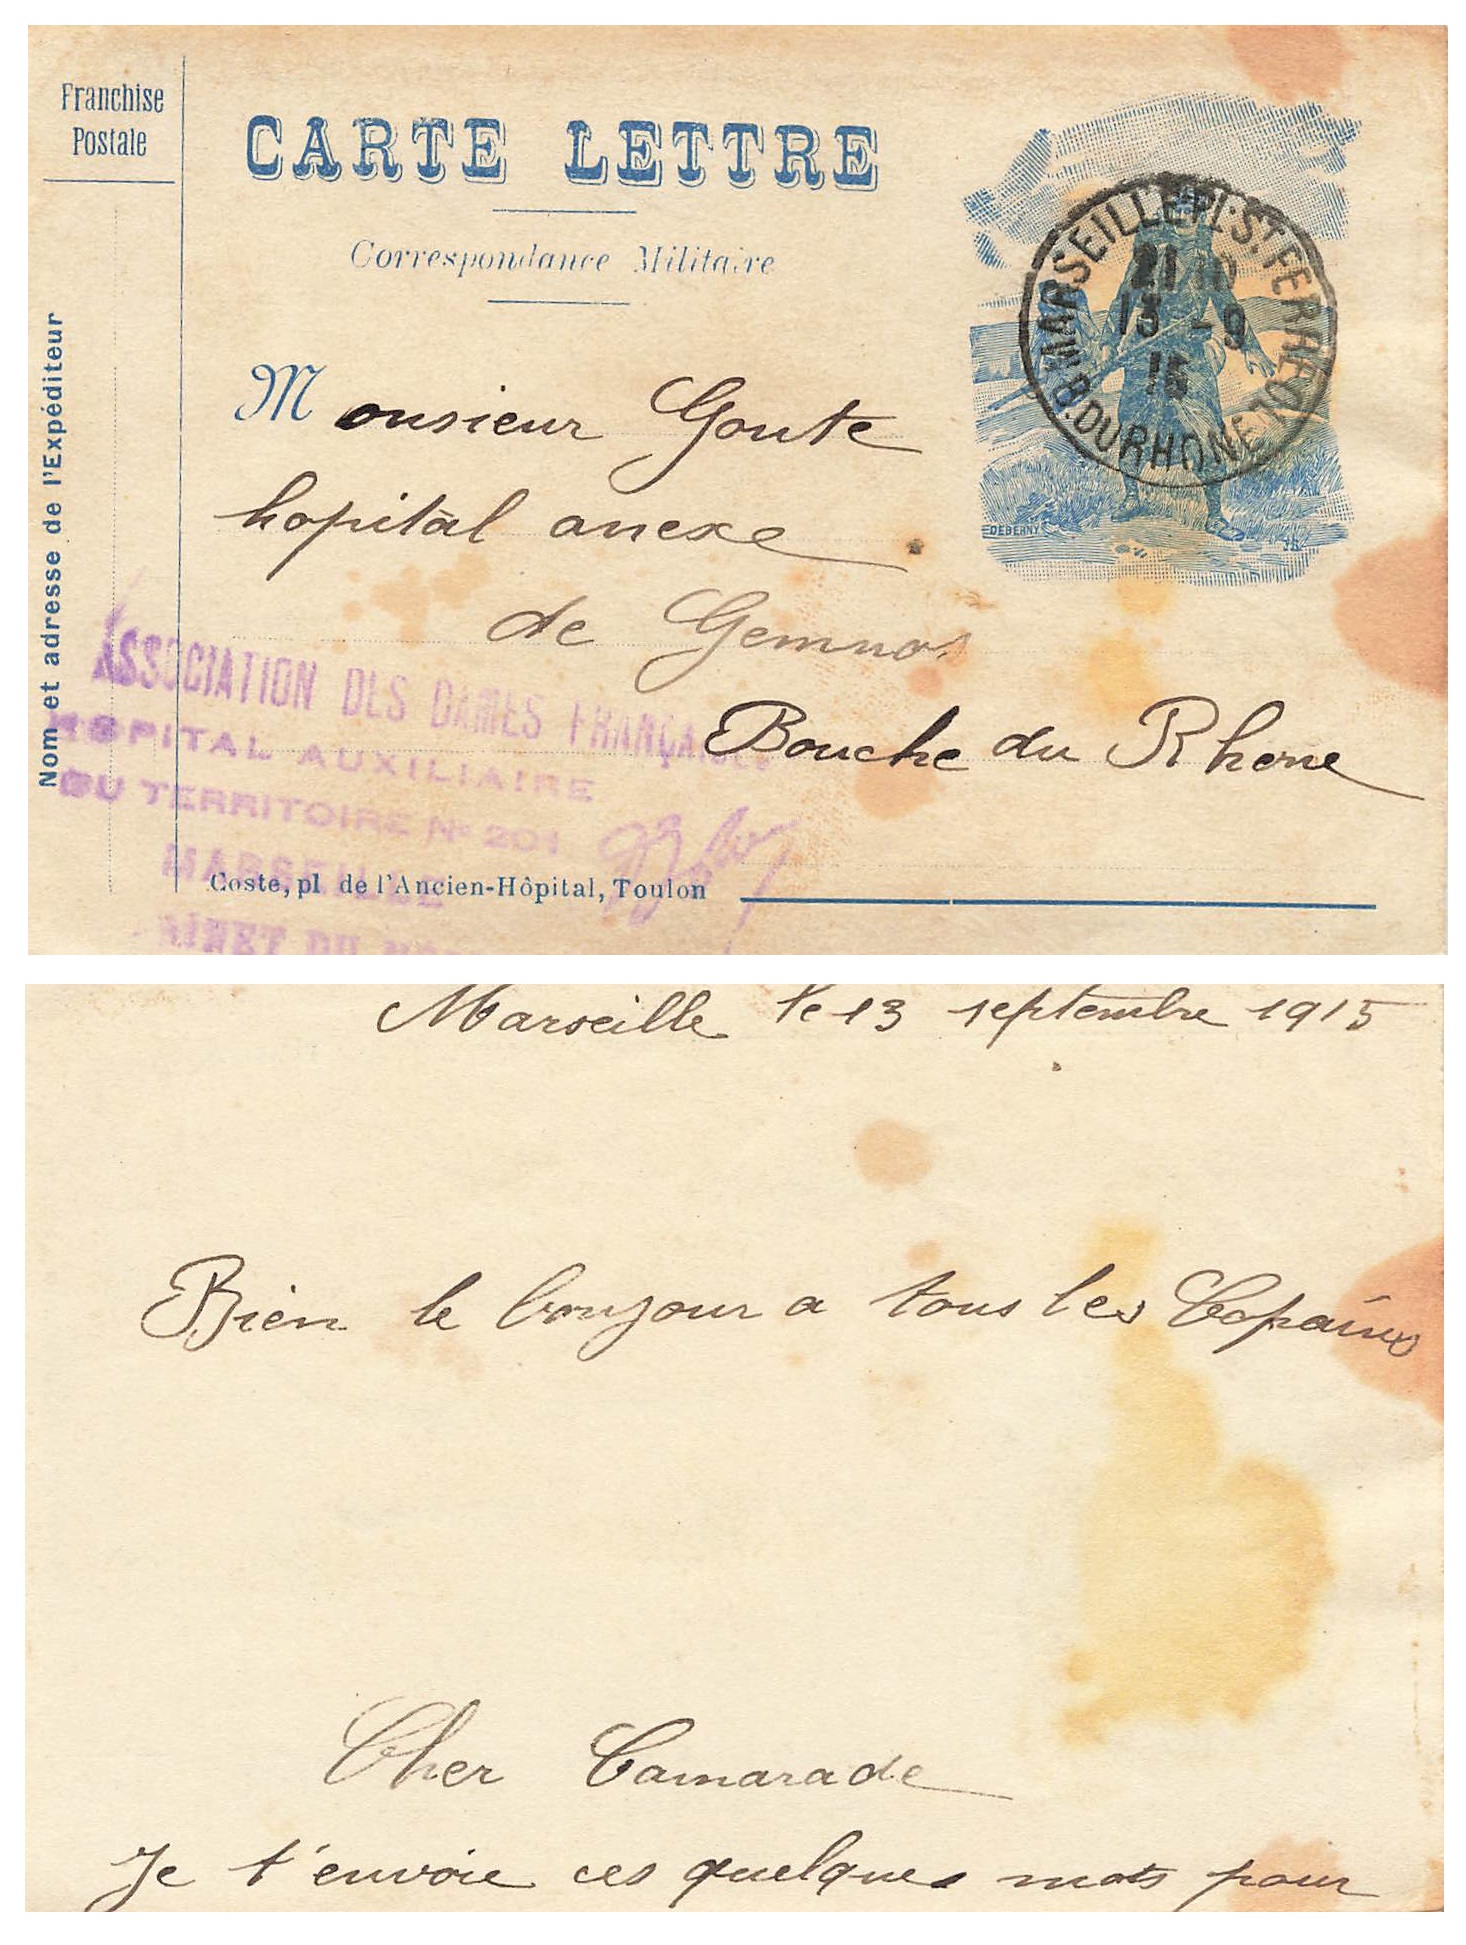 Franchise
Postale
CARTE LETTRE
Correspondance Militaire
Nom et adresse de l'Expéditeur
MARSEILLE PL. ST FERREOL
21 10
13 - 9
15
B. DU RHONE
DEBERNY
Monsieur Goute
hopital anexe
de Gemnos
Bouche du Rhone
ASSOCIATION DES DAMES FRANÇAISES
HOPITAL AUXILIAIRE
DU TERRITOIRE No 201
MARSEILLE
Coste, pl de l'Ancien-Hôpital, Toulon
Marseille le 13 septembre 1915
Bien le bonjour a tous les Copains
Cher Camarade
Je t'envoie ces quelques mots pour